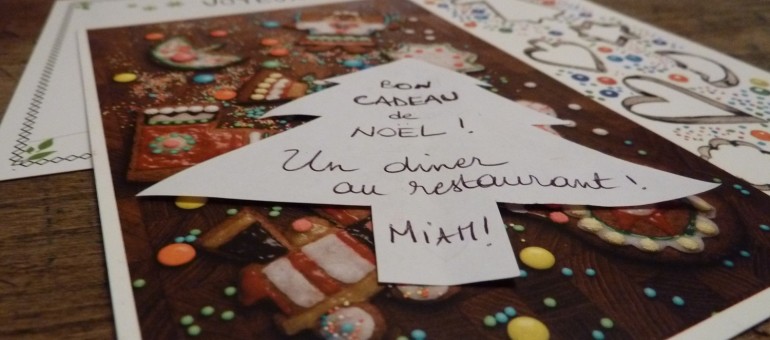 BON
CADEAU
de
NOËL !
Un dîner
au restaurant !
MIAM !